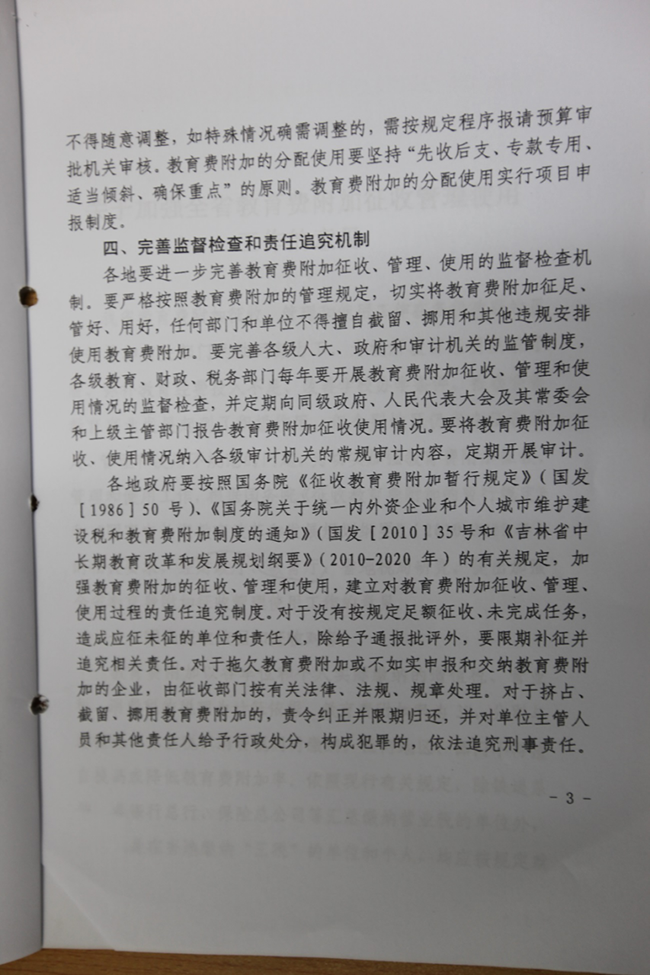 不得随意调整，如特殊情况确需调整的，需按规定程序报请预算审
批机关审核。教育费附加的分配使用要坚持“先收后支、专款专用、
适当倾斜、确保重点”的原则。教育费附加的分配使用实行项目申
报制度。
四、完善监督检查和责任追究机制
各地要进一步完善教育费附加征收、管理、使用的监督检查机
制。要严格按照教育费附加的管理规定，切实将教育费附加征足、
管好、用好，任何部门和单位不得擅自截留、挪用和其他违规安排
使用教育费附加。要完善各级人大、政府和审计机关的监管制度，
各级教育、财政、税务部门每年要开展教育费附加征收、管理和使
用情况的监督检查，并定期向同级政府、人民代表大会及其常委会
和上级主管部门报告教育费附加征收使用情况。要将教育费附加征
收、使用情况纳入各级审计机关的常规审计内容，定期开展审计。
各地政府要按照国务院《征收教育费附加暂行规定》（国发
[1986]50 号）、《国务院关于统一内外资企业和个人城市维护建
设税和教育费附加制度的通知》（国发[2010]35号和《吉林省中
长期教育改革和发展规划纲要》（2010-2020 年）的有关规定，加
强教育费附加的征收、管理和使用，建立对教育费附加征收、管理、
使用过程的责任追究制度。对于没有按规定足额征收、未完成任务，
造成应征未征的单位和责任人，除给予通报批评外，要限期补征并
追究相关责任。对于拖欠教育费附加或不如实申报和交纳教育费附
加的企业，由征收部门按有关法律、法规、规章处理。对于挤占、
截留、挪用教育费附加的，责令纠正并限期归还，并对单位主管人
员和其他责任人给予行政处分，构成犯罪的，依法追究刑事责任。
- 3 -